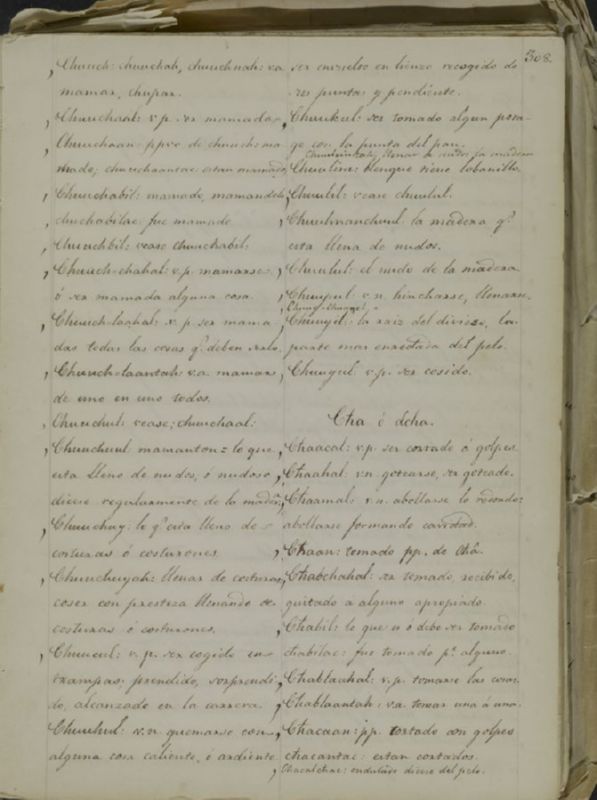 308.
Chuuch: chuuchah, chuuchnah: va.
mamar, chupar.
Chuuchaal: v.p. ser mamada.
Chuuchaan: ppvo de chuuch: ma-
mado; chuuchaantac: estan mamados
Chuuchabil: mamado, mamandolo
chuchabilac: fue mamado
Chuuchbil: vease chuuchabil:
Chuuch-chahal: v.p. mamarse:
ó ser mamada alguna cosa.
Chuuch-laahal: v.p. ser mama
das todas las cosas qe. deben serlo.
Chuuch-laantah: v.a. mamar
de uno en uno todos.
Chuuchul: vease; chuuchaal:
Chuuchuul: mamanton = lo que
esta lleno de nudos, ó nudoso
dicese regularmente de la madera
Chuuchuy: lo qe. esta lleno de
costuras ó costurones.
Chuuchuyah: llenar de costuras,
coser con presteza llenando de
costuras ó costurones.
Chuucul: v.p. ser cogido en
trampas; prendido, sorprendi
do, alcanzado en la carrera.
Chuuhul: v.n. quemarse con
alguna cosa caliente, ó ardiente
ser envuelto en lienzo recogido de
sus puntas y pendiente.
ser tomado algun posa-
go con la punta del pan.
llenar de nudos la madera
tiene lobanillo.
Chuulul: vease chuulul.
la madera qe.
esta llena de nudos.
Chuulul: el nudo de la madera
v.n. hincharse, llenarse.
la raiz del divieso, la
parte mas enredada del pelo.
Chuuyul: v.p. ser cosido.
Cha ó dcha.
Chaacal: v.p. ser cortado á golpes
Chaahal: v.n. gotearse, ser goteado.
Chaamal: v.n. abollarse lo redondo:
abollarse formando cavidad.
Chaan: tomado pp. de Chá.
Chabchahal: ser tomado, recibido,
quitado á alguno apropiado.
Chabil: lo que es ó debe ser tomado
chabilac: fue tomado pr. alguno.
Chablaahal: v.p. tomarse las cosas
Chablaantah: v.a. tomar una á una.
Chacaan: pp. cortado con golpes
chacantac: estan cortados.
Chacalchac: ondulado dicese del pelo.